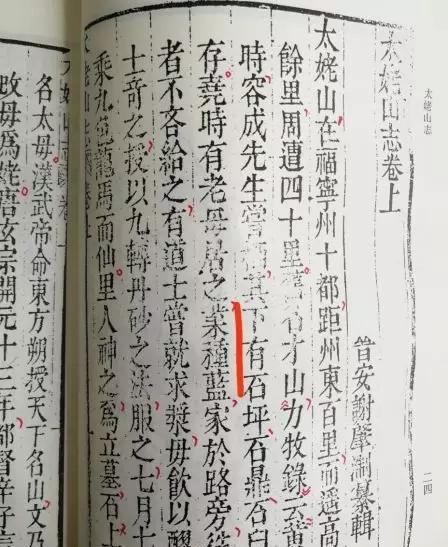 太姥山志
二四
太姥山志卷上
晉安謝肇淛纂輯
太姥山在福寧州十都距州東百里而遙高
餘里周遭四十里舊名才山力牧錄云黃
時容成先生嘗栖其下有石坪石鼎石臼
存堯時有老母居之業種藍家於路旁往
者不吝給之有道士嘗就求漿母飲以醪
士奇之授以九轉丹砂之法服之七月十
乘九色龍馬而仙里人神之爲立墓石上
名太母漢武帝命東方朔授天下名山文乃
改母爲姥唐玄宗開元十三年都督辛子言